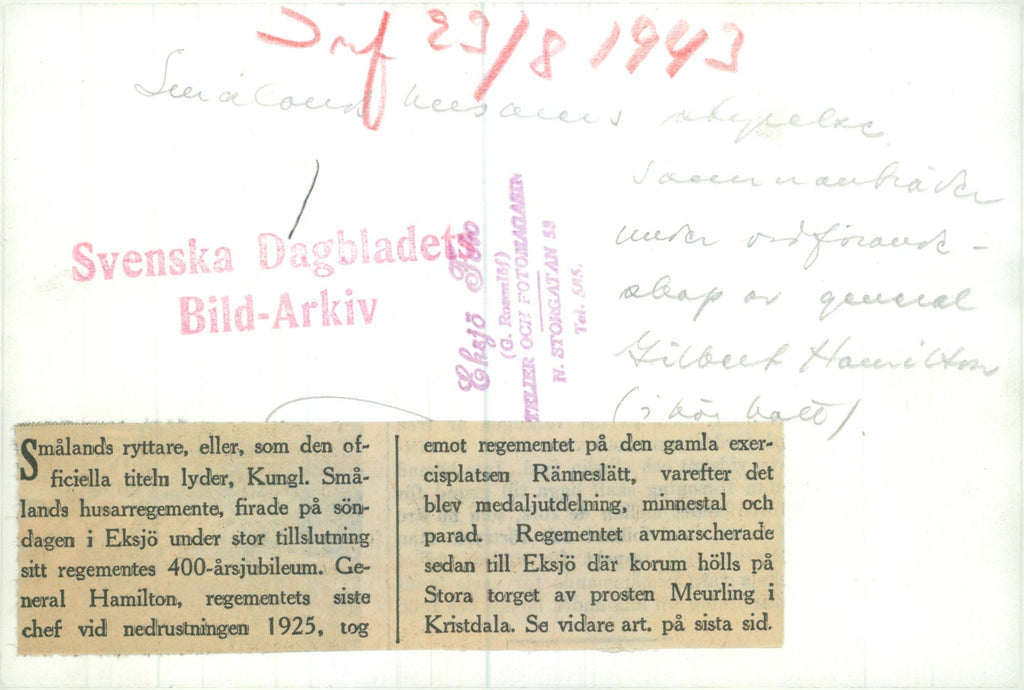 Inf 23/8 1943
Smålands husarers styrelse
sammanträder
under ordförande-
skap av general
Gilbert Hamilton
(i hög hatt).
Svenska Dagbladets
Bild-Arkiv
Eksjö Foto
(G. Rosenlöf)
ATELIER OCH FOTOMAGASIN
N. STORGATAN 53
Tel. 585.
Smålands ryttare, eller, som den of-
ficiella titeln lyder, Kungl. Små-
lands husarregemente, firade på sön-
dagen i Eksjö under stor tillslutning
sitt regementes 400-årsjubileum. Ge-
neral Hamilton, regementets siste
chef vid nedrustningen 1925, tog
emot regementet på den gamla exer-
cisplatsen Ränneslätt, varefter det
blev medaljutdelning, minnestal och
parad. Regementet avmarscherade
sedan till Eksjö där korum hölls på
Stora torget av prosten Meurling i
Kristdala. Se vidare art. på sista sid.